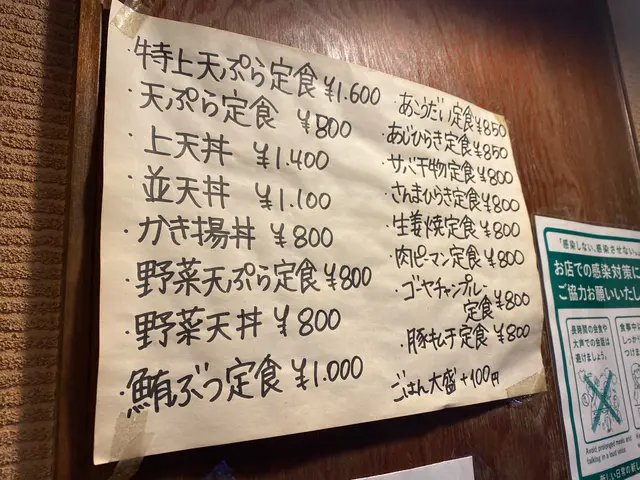 ・特上天ぷら定食 ¥1.600
・天ぷら定食 ¥800
・上天丼 ¥1.400
・並天丼 ¥1.100
・かき揚丼 ¥800
・野菜天ぷら定食 ¥800
・野菜天丼 ¥800
・鮪ぶつ定食 ¥1.000
・あこうだい定食 ¥850
・あじひらき定食 ¥850
・サバ干物定食 ¥800
・さんまひらき定食 ¥800
・生姜焼定食 ¥800
・肉ピーマン定食 ¥800
・ゴーヤチャンプルー
定食 ¥800
・豚キムチ定食 ¥800
ごはん大盛 +100円
「感染しない、感染させない
お店での感染対策に
ご協力お願いいたし
長時間の会食や
大声での会話は
避けましょう。
食事中
しっかり
つけ
Avoid prolonged meals and
talking in a loud voice
新しい日常の